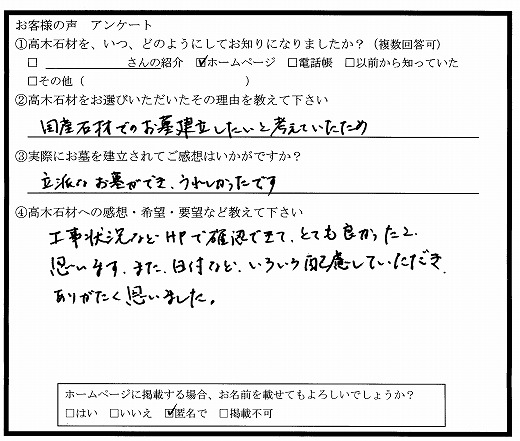 お客様の声　アンケート
①高木石材を、いつ、どのようにしてお知りになりましたか？（複数回答可）
□＿＿＿＿＿＿＿さんの紹介　☑ホームページ　□電話帳　□以前から知っていた
□その他（　　　　　　　　　　　　）
②高木石材をお選びいただいたその理由を教えて下さい
国産石材でのお墓建立したいと考えていたため
③実際にお墓を建立されてご感想はいかがですか？
立派なお墓ができ、うれしかったです
④高木石材への感想・希望・要望など教えて下さい
工事状況などHPで確認できて、とても良かったと
思います。また、日付など、いろいろ配慮していただき
ありがたく思いました。
ホームページに掲載する場合、お名前を載せてもよろしいでしょうか？
□はい　□いいえ　☑匿名で　□掲載不可